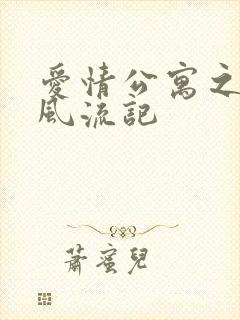 愛情公寓之
風流記
蕭蜜兒